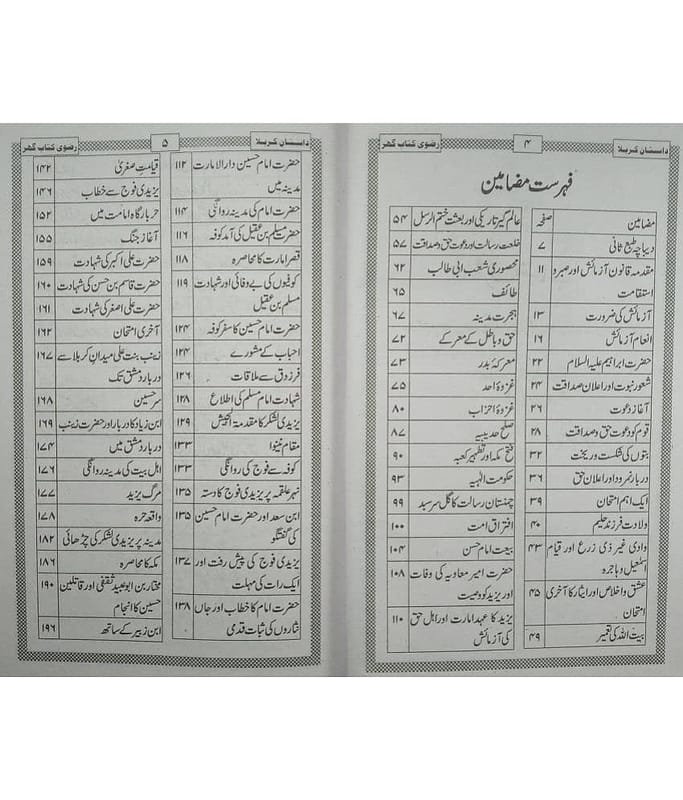 داستان کربلا
۴
رضوی کتاب گھر
فہرست مضامین
مضامین صفحہ
دیباچہ طبع ثانی ۷
مقدمہ قانون آزمائش اور صبر و ۱۱
استقامت
آزمائش کی ضرورت ۱۳
انعام آزمائش ۱۶
حضرت ابراہیم علیہ السلام ۲۲
شعور نبوت اور اعلان صداقت ۲۴
آغاز دعوت ۲۶
قوم کو دعوت حق و صداقت ۲۸
بتوں کی شکست و ریخت ۳۲
دربار نمرود اور اعلان حق ۳۶
ایک اہم امتحان ۳۹
ولادت فرزند حلیم ۴۰
وادی غیر ذی زرع اور قیام ۴۳
اسمٰعیل و ہاجرہ
عشق و اخلاص اور ایثار کا آخری ۴۵
امتحان
بیت اللہ کی تعمیر ۴۹
عالم گیر تاریکی اور بعثت ختم الرسل ۵۴
خلعت رسالت اور دعوت حق و صداقت ۵۷
محصوری شعب ابی طالب ۶۲
طائف ۶۵
ہجرت مدینہ ۶۷
حق و باطل کے معرکے ۷۲
معرکۂ بدر ۷۳
غزوۂ احد ۷۵
غزوۂ احزاب ۸۰
صلح حدیبیہ ۸۷
فتح مکہ اور تطہیر کعبہ ۹۰
حکومت الٰہیہ ۹۳
چمنستان رسالت کا گل سرسبد ۹۹
افتراق امت ۱۰۰
بیعت امام حسن ۱۰۴
حضرت امیر معاویہ کی وفات ۱۰۸
اور یزید کو وصیت
یزید کا عہد امارت اور اہل حق ۱۱۰
کی آزمائش
داستان کربلا
۵
رضوی کتاب گھر
حضرت امام حسین دارالامارت ۱۱۲
مدینہ میں
حضرت امام کی مدینہ روانگی ۱۱۴
حضرت مسلم بن عقیل کی آمد کوفہ ۱۱۶
قصر امارت کا محاصرہ ۱۱۸
کوفیوں کی بے وفائی اور شہادت ۱۱۹
مسلم بن عقیل
حضرت امام حسین کا سفر کوفہ ۱۲۴
احباب کے مشورے ۱۲۴
فرزدق سے ملاقات ۱۲۶
شہادت امام مسلم کی اطلاع ۱۲۸
یزیدی لشکر کا مقدمۃ الجیش ۱۲۹
مقام نینوا ۱۳۳
کوفہ سے فوج کی روانگی ۱۳۳
نہر علقمہ پر یزیدی فوج کا دستہ ۱۳۵
ابن سعد اور حضرت امام حسین ۱۳۵
کی گفتگو
یزیدی فوج کی پیش رفت اور ۱۳۷
ایک رات کی مہلت
حضرت امام کا خطاب اور جاں ۱۳۸
نثاروں کی ثبات قدمی
قیامت صغریٰ ۱۴۲
یزیدی فوج سے خطاب ۱۴۶
حر بارگاہ امامت میں ۱۵۲
آغاز جنگ ۱۵۵
حضرت علی اکبر کی شہادت ۱۵۹
حضرت قاسم بن حسن کی شہادت ۱۶۰
حضرت علی اصغر کی شہادت ۱۶۱
آخری امتحان ۱۶۲
زینب بنت علی میدان کربلا سے ۱۶۷
دربار دمشق تک
سر حسین ۱۶۸
ابن زیاد کا دربار اور حضرت زینب ۱۶۹
دربار دمشق میں ۱۷۴
اہل بیت کی مدینہ روانگی ۱۷۶
مرگ یزید ۱۷۷
واقعہ حرہ ۱۷۸
مدینہ پر یزیدی لشکر کی چڑھائی ۱۸۲
مکہ کا محاصرہ ۱۸۶
مختار بن ابو عبید ثقفی اور قاتلین ۱۹۰
حسین کا انجام
ابن زبیر کے ساتھ ۱۹۶